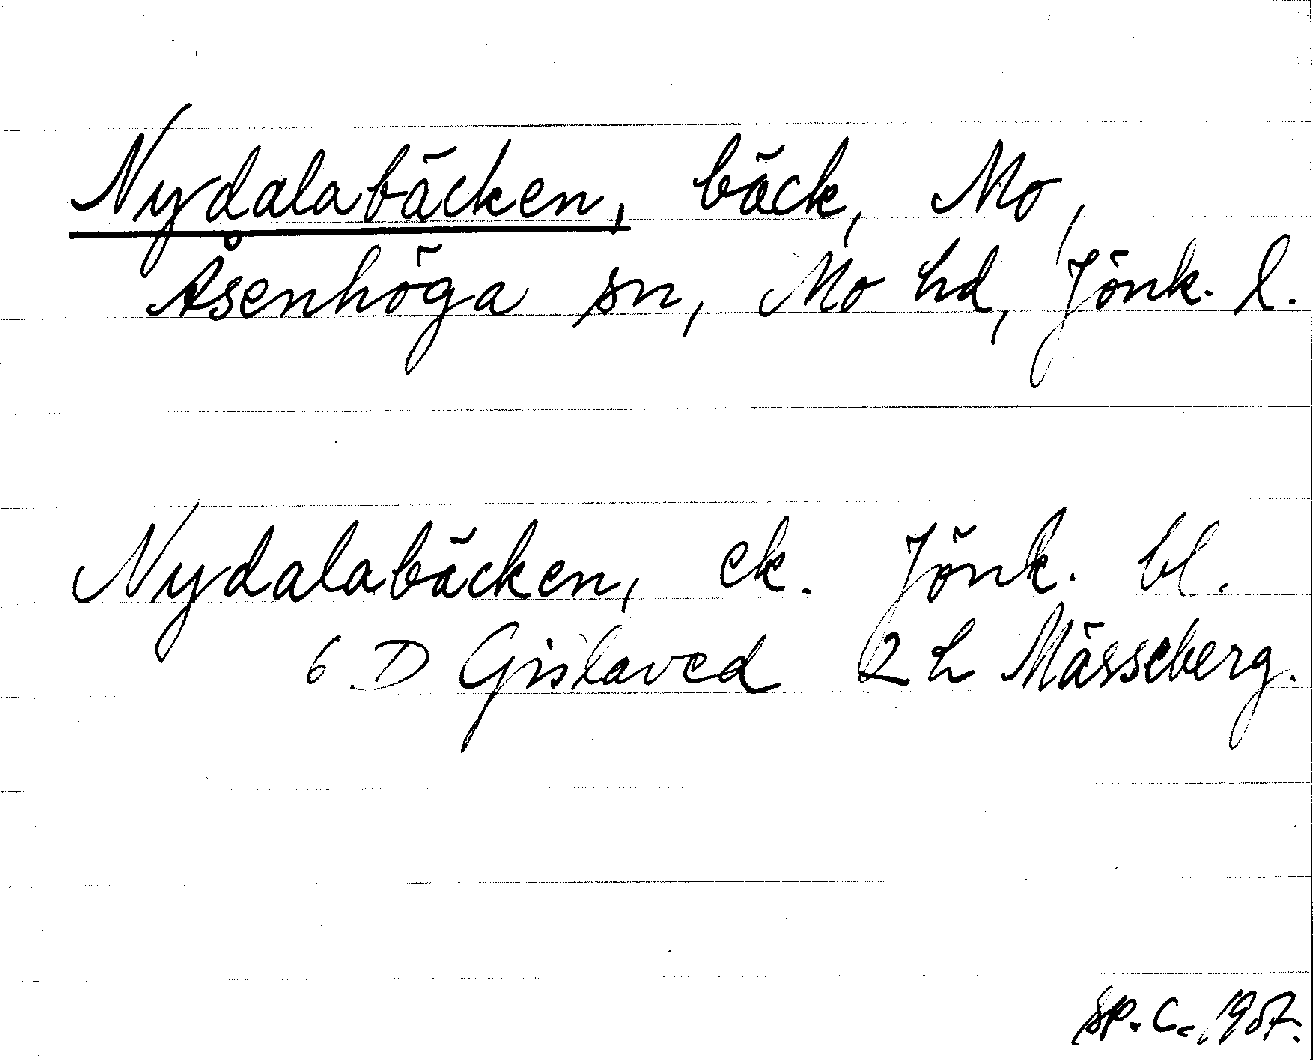 Nydalabäcken, bäck, Mo,
Åsenhöga sn, Mo hd, Jönk. l.
Nydalabäcken, ek. Jönk. bl.
6 D Gislaved 2 h Mässeberg.
1957.